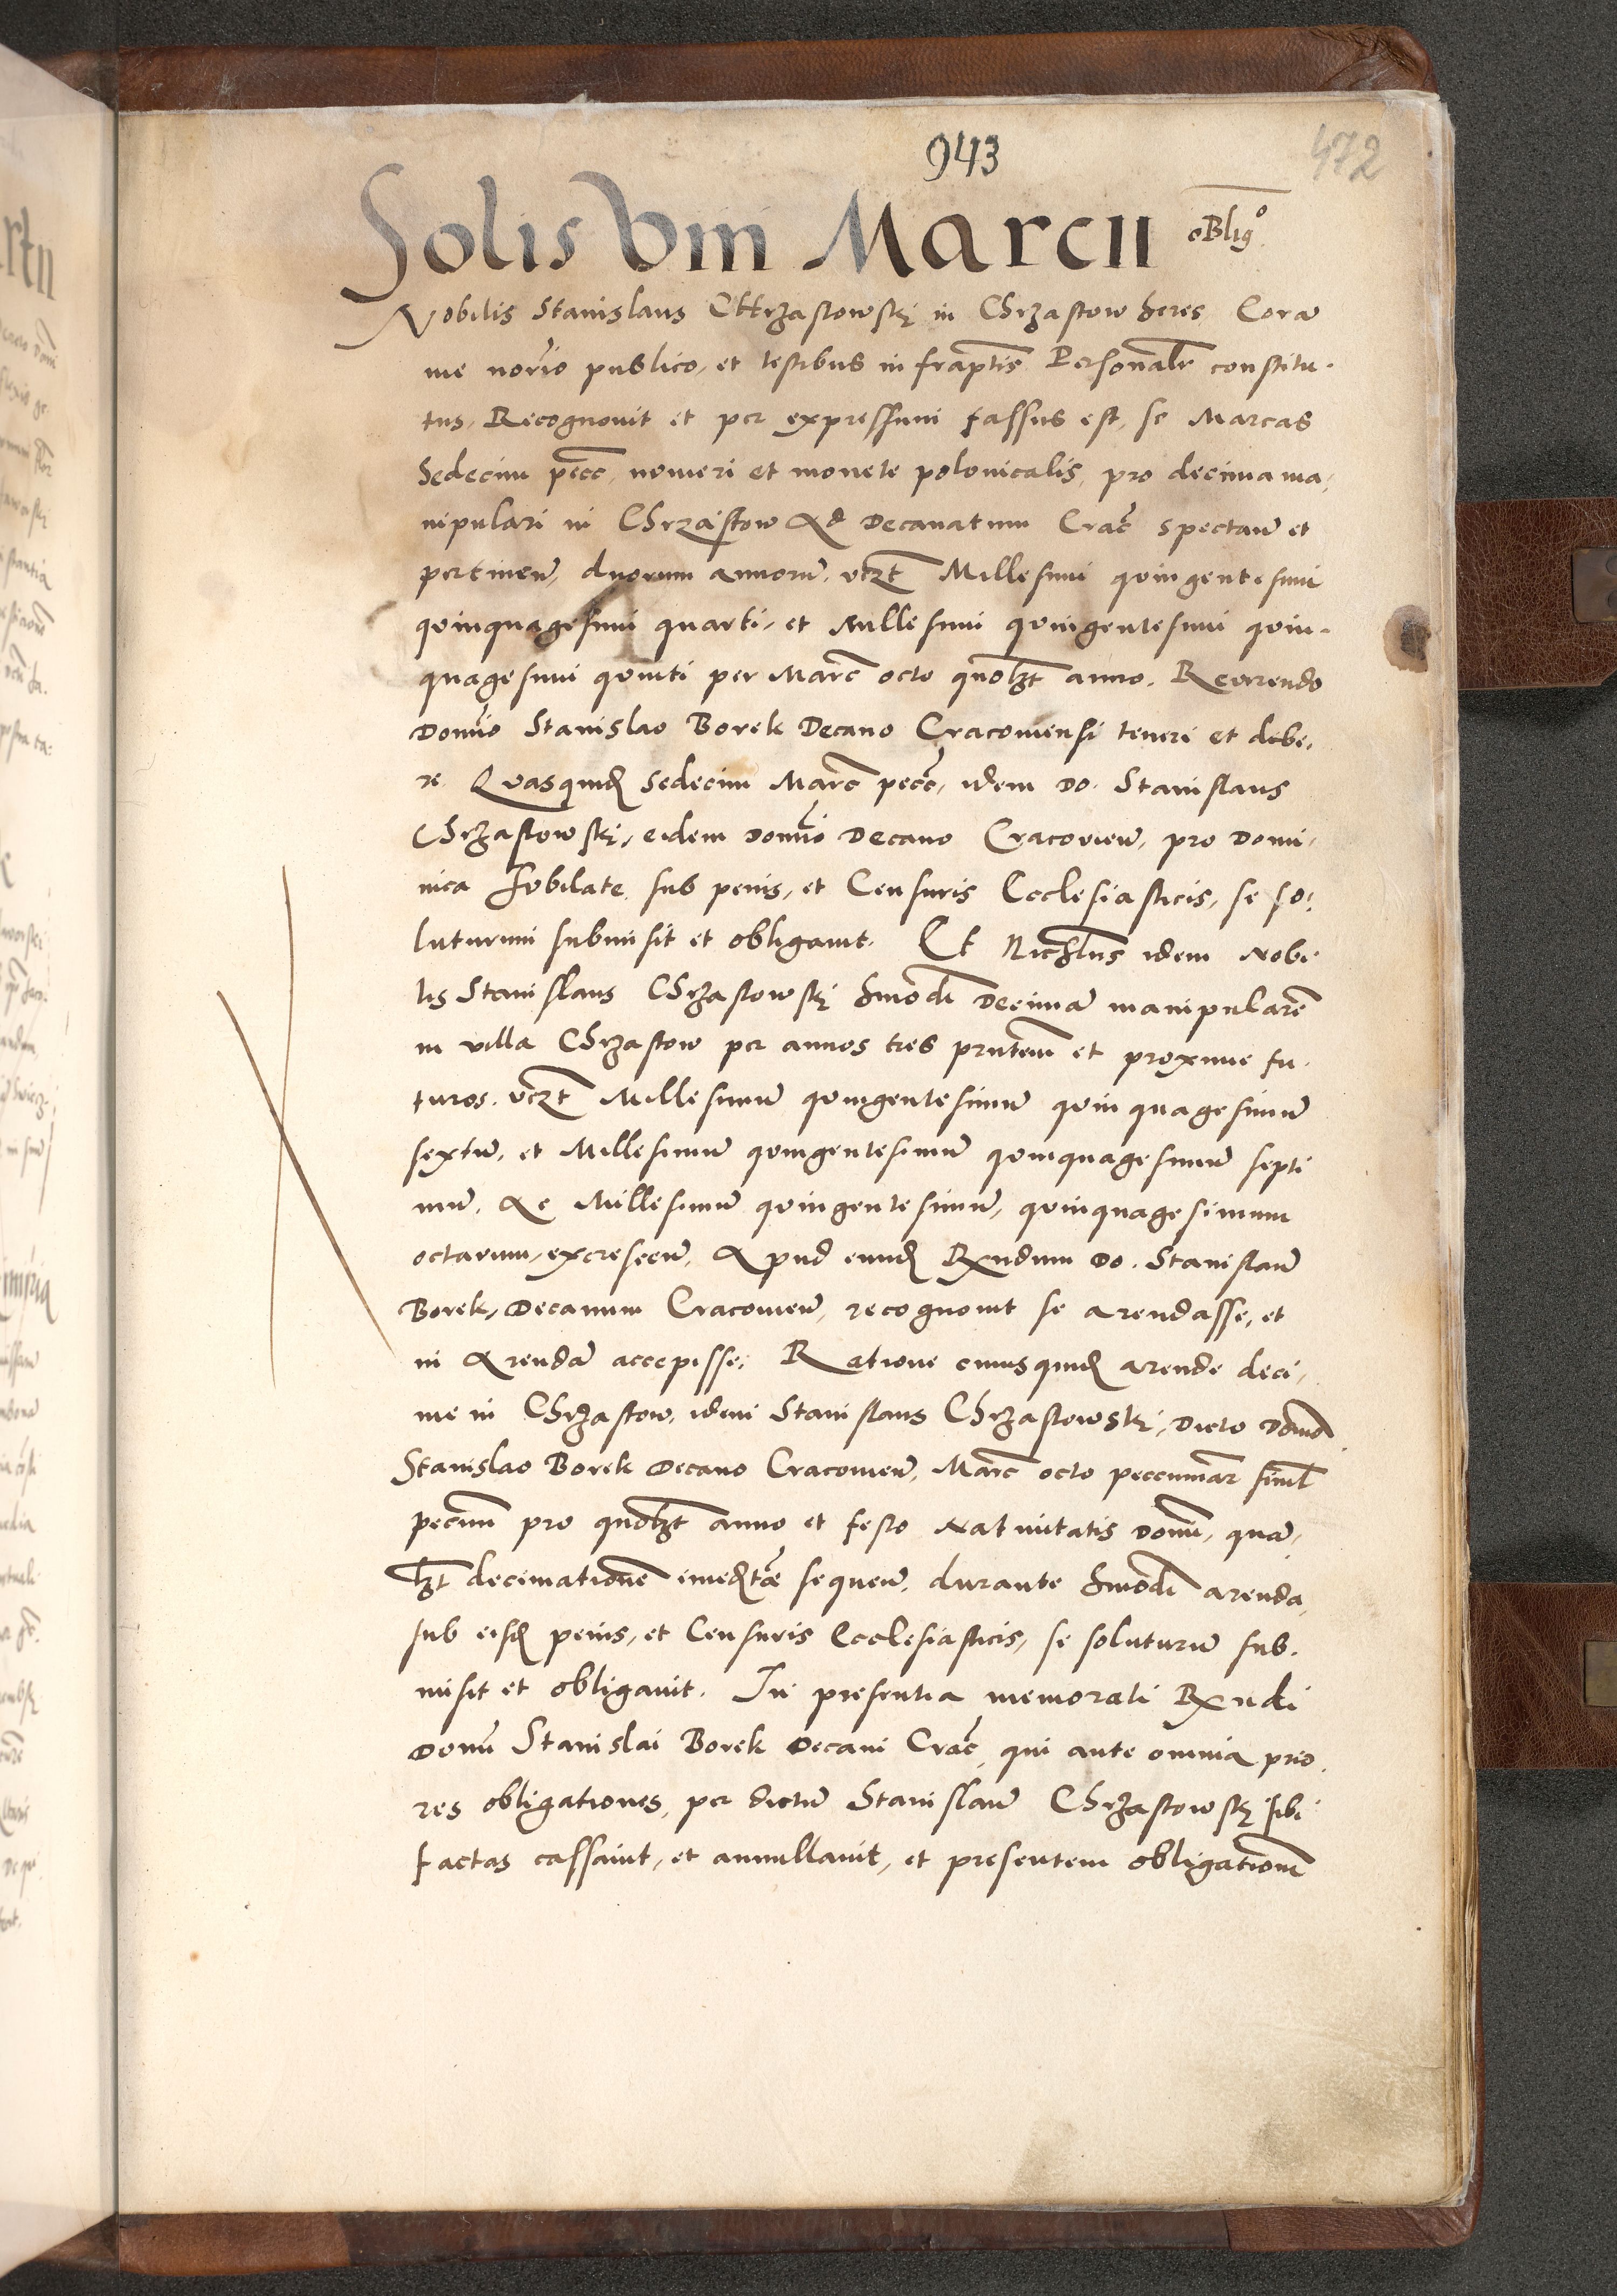 943
472
Solis Vin Marcii obligo
Nobilis Stanislaus Chrząstowski in Chrząstow heres Corā
me norio publico, et testibus infraptis Personalr constitu-
tus, Recognovit et per expressum fassus est, se Marcas
sedecim pecc, numeri et monete polonicalis, pro decima ma-
nipulari in Chrząstow Ad Decanatum Crac̄ spectan̄ et
pertinen̄, duorum annorū, vtzt Millesimi quingentesimi
quinquagesimi quarti, et Millesimi quingentesimi quin-
quagesimi quinti per Marc̄ octo quolzt anno. Reverendo
Domio Stanislao Borek Decano Cracoviensi teneri et debe-
re. Quasquid sedecim Marc̄ pecc̄, idem Do. Stanislaus
Chrząstowski, eidem Domio Decano Cracovien̄, pro Domi-
nica Jubilate sub penis, et Censuris Ecclesiasticis, se so-
luturum submisit et obligavit. Et Nichls idem Nobi-
lis Stanislaus Chrząstowski hmodi Decimā manipularē
in villa Chrząstow per annos tres pntem et proxime fu-
turos. vtzt Millesimū quingentesimū quinquagesimū
sextū, et Millesimū quingentesimū quinquagesimū septi
mū, Ac Millesimū quingentesimū, quinquagesimum
octavum, excrescen̄, Apud eund Rndum Do. Stanislaū
Borek, Decanum Cracovien̄, recognovit se arendasse, et
in Arendā accepisse, Ratione cuiusquid arende deci-
me in Chrząstow, idem Stanislaus Chrząstowski, Dicto Domo
Stanislao Borek Decano Cracovien̄, Marc̄ octo peccuniar siml
pecnn pro quolzt anno et festo Nativitatis Domi, quā-
lzt decimationē imedtae sequen̄, durante hmodi arenda,
sub eisd penis, et Censuris Ecclesiasticis, se soluturū sub-
misit et obligavit. In presentia memorati Rndi
Domi Stanislai Borek Decani Crac̄, qui ante omnia prio-
res obligationes, per dictū Stanislaū Chrząstowski sibi
factas cassavit, et annullavit, et presentem obligationē